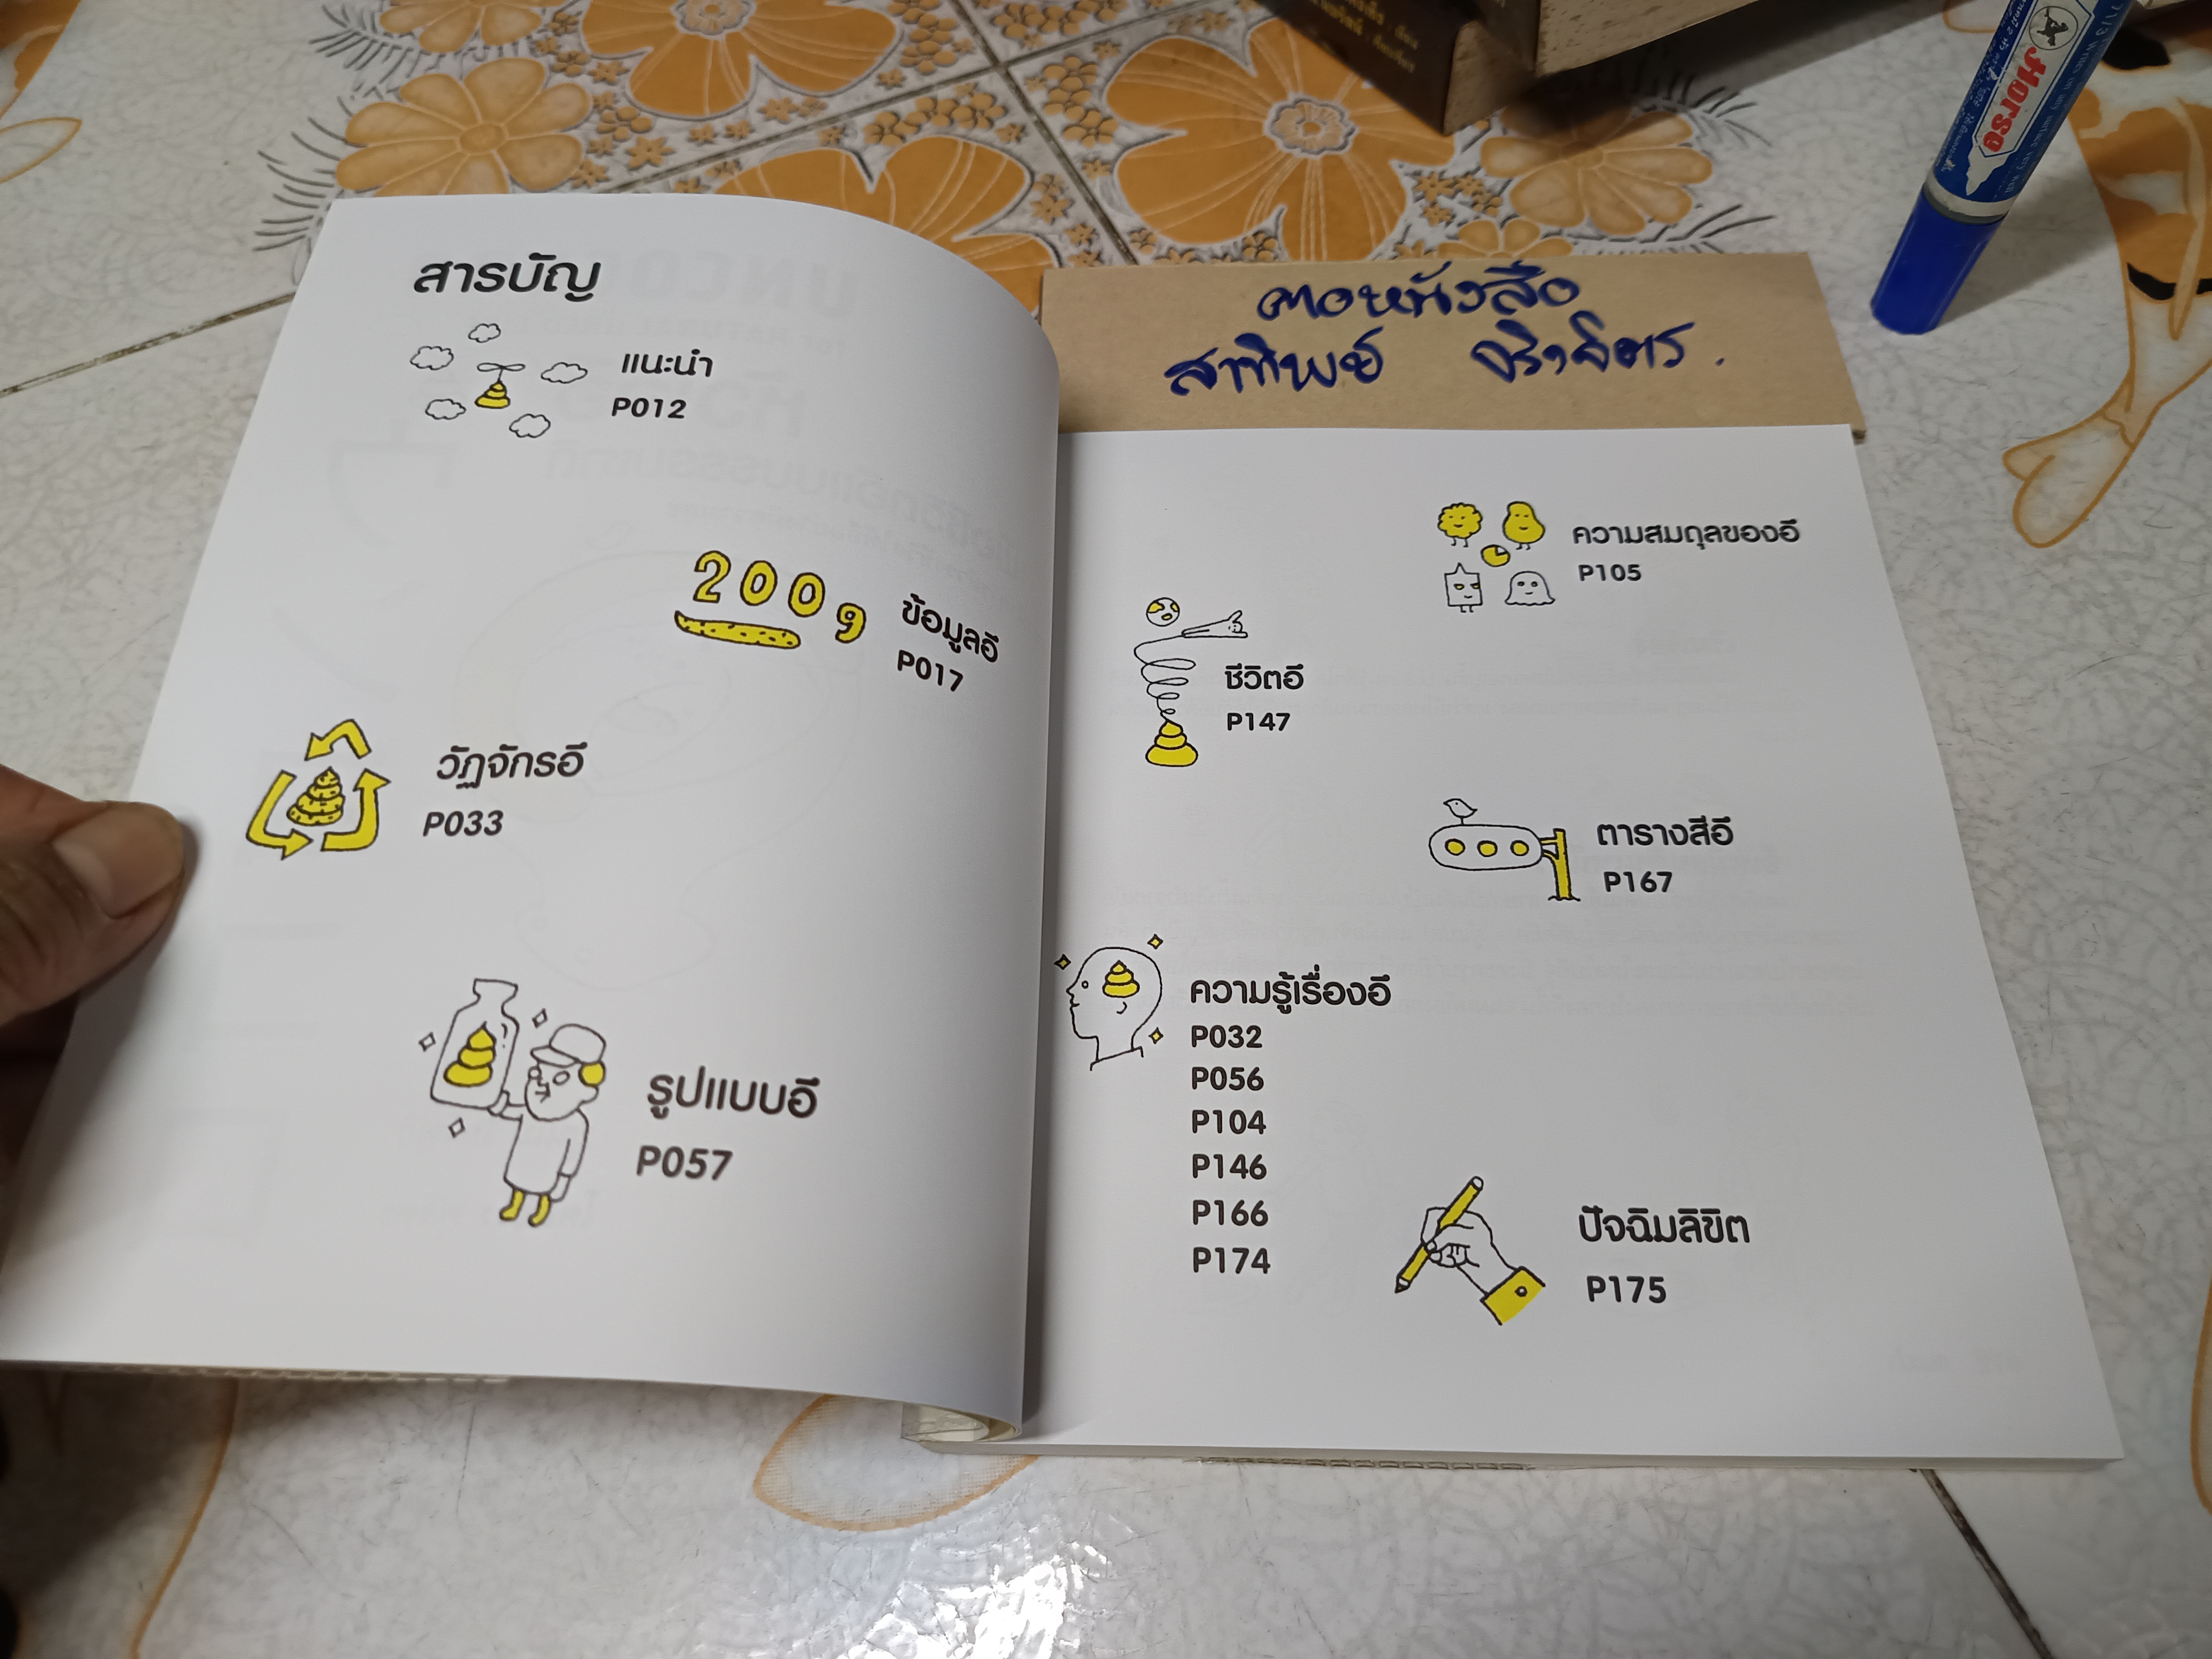 สารบัญ
แนะนำ
P012
200g
ข้อมูลอึ
P017
วัฏจักรอึ
P033
รูปแบบอึ
P057
ความสมดุลของอึ
P105
ชีวิตอึ
P147
ตารางสีอึ
P167
ความรู้เรื่องอึ
P032
P056
P104
P146
P166
P174
ปัจฉิมลิขิต
P175
คอหนังสือ
สาทิพย์
Horse